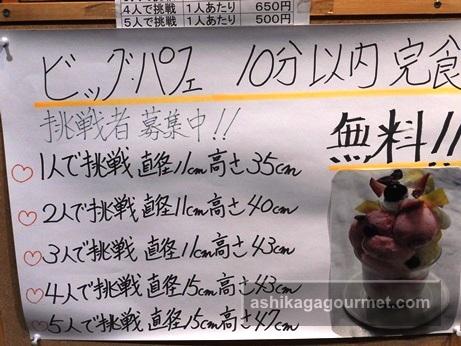 4人で挑戦 1人あたり 650円
5人で挑戦 1人あたり 500円
ビッグ・パフェ 10分以内 完食
挑戦者募集中!! 無料!!
1人で挑戦 直径11cm高さ35cm
2人で挑戦 直径11cm高さ40cm
3人で挑戦 直径11cm高さ43cm
4人で挑戦 直径15cm高さ43cm
5人で挑戦 直径15cm高さ47cm
ashikagagourmet.com